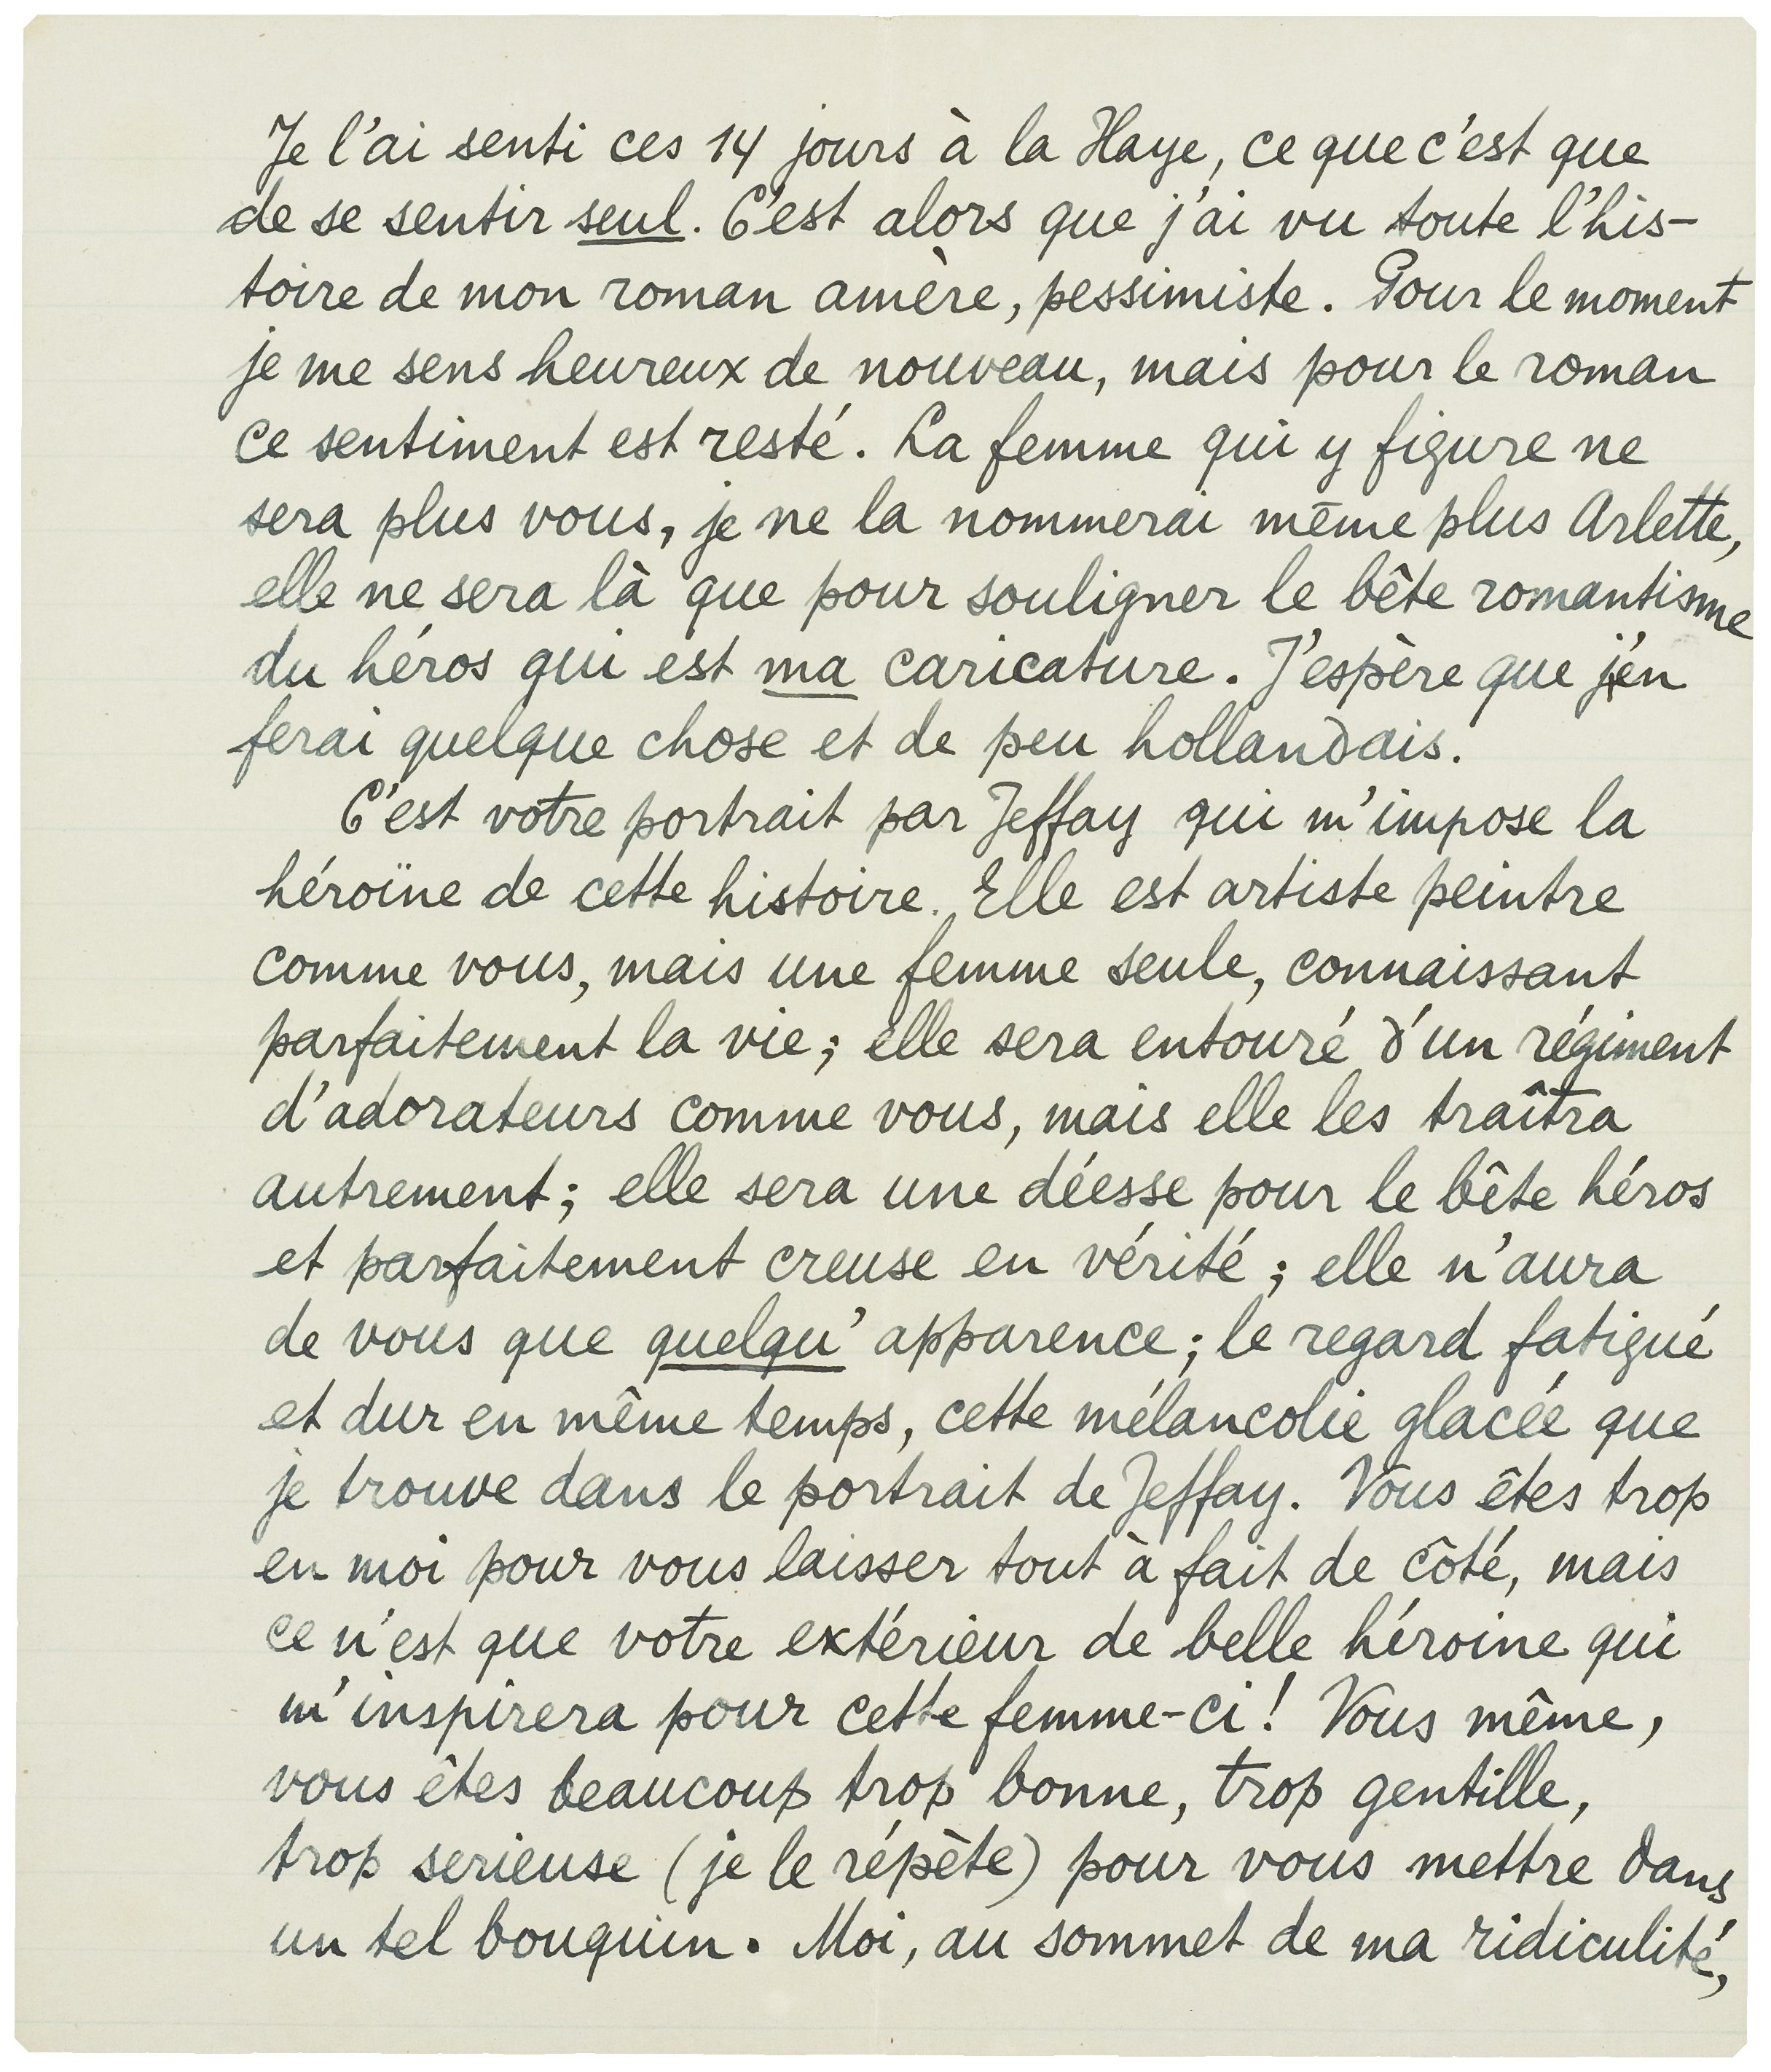 Je l'ai senti ces 14 jours à la Haye, ce que c'est que
de se sentir seul. C'est alors que j'ai vu toute l'his-
toire de mon roman amère, pessimiste. Pour le moment
je me sens heureux de nouveau, mais pour le roman
ce sentiment est resté. La femme qui y figure ne
sera plus vous, je ne la nommerai même plus Arlette,
elle ne sera là que pour souligner le bête romantisme
du héros qui est ma caricature. J'espère que j'en
ferai quelque chose et de peu hollandais.
C'est votre portrait par Jeffay qui m'impose la
héroïne de cette histoire. Elle est artiste peintre
comme vous, mais une femme seule, connaissant
parfaitement la vie; elle sera entouré d'un régiment
d'adorateurs comme vous, mais elle les traîtra
autrement; elle sera une déesse pour le bête héros
et parfaitement creuse en vérité; elle n'aura
de vous que quelqu' apparence; le regard fatigué
et dur en même temps, cette mélancolie glacée que
je trouve dans le portrait de Jeffay. Vous êtes trop
en moi pour vous laisser tout à fait de côté, mais
ce n'est que votre extérieur de belle héroine qui
m'inspirera pour cette femme-ci! Vous même,
vous êtes beaucoup trop bonne, trop gentille,
trop serieuse (je le répète) pour vous mettre dans
un tel bouquin. Moi, au sommet de ma ridiculité,